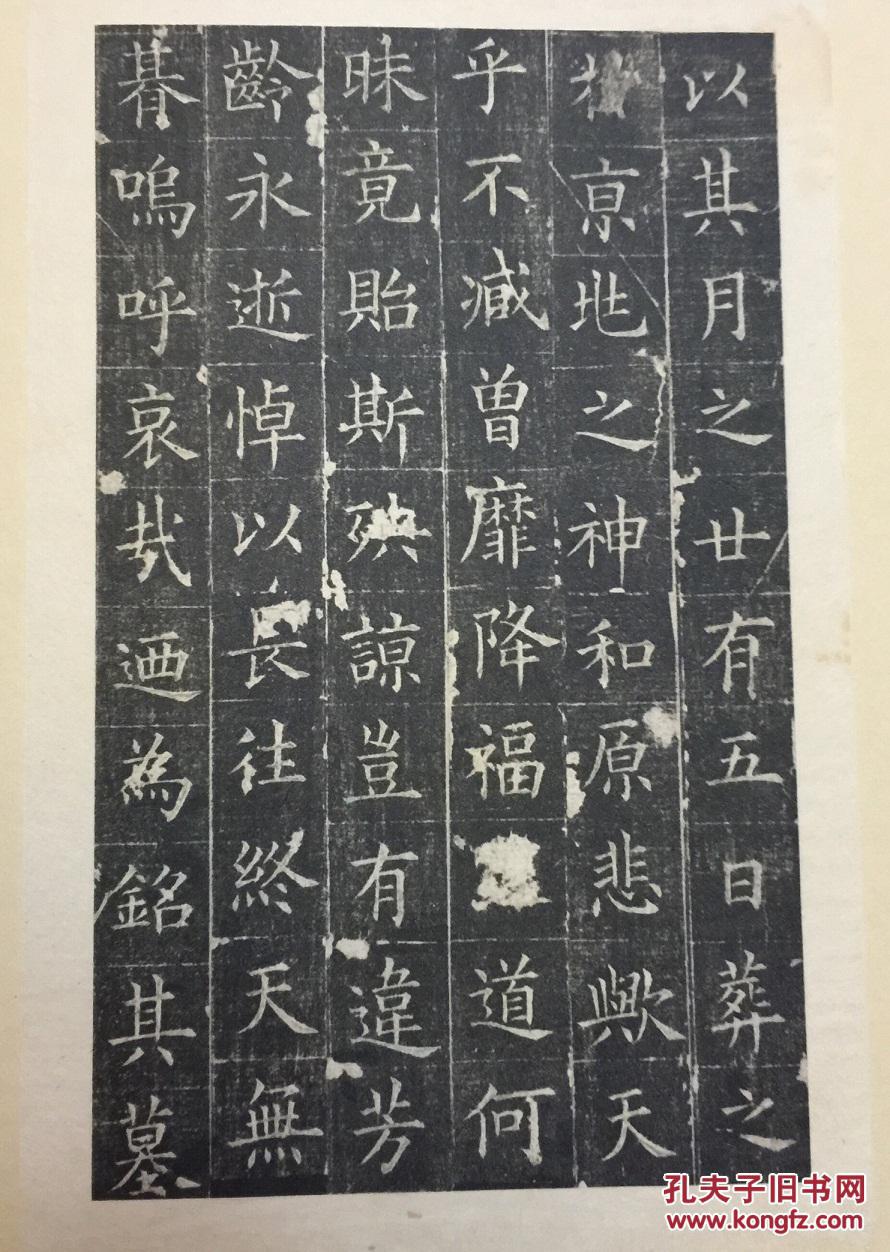 以其月之廿有五日葬之
亰兆之神和原悲歟天
乎不臧曾靡降福道何
昧竟貽斯殃諒豈有違芳
齡永逝悼以長往終天無
朞嗚呼哀哉迺為銘其墓
孔夫子旧书网
www.kongfz.com